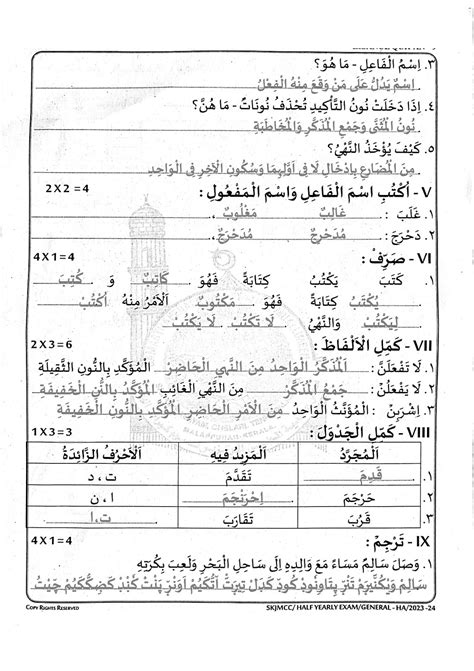 ٣. اِسْمُ الْفَاعِلِ - مَا هُوَ؟
اِسْمٌ يَدُلُّ عَلَى مَنْ وَقَعَ مِنْهُ الْفِعْلُ
٤. اِذَا دَخَلَتْ نُونُ التَّأْكِيدِ تُحْذَفُ نُونَاتٌ - مَا هُنَّ؟
نُونُ الْمُثَنَّى وَجَمْعِ الْمُذَكَّرِ وَالْمُخَاطَبَةِ
٥. كَيْفَ يُؤْخَذُ النَّهْيُ؟
مِنَ الْمُضَارِعِ بِإِدْخَالِ لَا فِى أَوَّلِهَا وَسُكُونِ الْآخِرِ فِى الْوَاحِدِ
V - اُكْتُبِ اسْمَ الْفَاعِلِ وَاسْمَ الْمَفْعُولِ : 2X2 =4
١. غَلَبَ : غَالِبٌ مَغْلُوبٌ
٢. دَحْرَجَ : مُدَحْرِجٌ مُدَحْرَجٌ
VI - صَرِّفْ : 4X1=4
١. كَتَبَ يَكْتُبُ كِتَابَةً فَهُوَ كَاتِبٌ وَ كُتِبَ
يُكْتَبُ كِتَابَةً فَهُوَ مَكْتُوبٌ اَلْاَمْرُ مِنْهُ اُكْتُبْ
لِيَكْتُبْ وَالنَّهْيُ لَا تَكْتُبْ لَا يَكْتُبْ
VII - كَمِّلِ الْاَلْفَاظَ : 2X3=6
١. لَا تَفْعَلَنَّ : اَلْمُذَكَّرُ الْوَاحِدُ مِنَ النَّهْيِ الْحَاضِرِ الْمُؤَكَّدِ بِالنُّونِ الثَّقِيلَةِ
٢. لَا يَفْعَلُنْ : جَمْعُ الْمُذَكَّرِ مِنَ النَّهْيِ الْغَائِبِ الْمُؤَكَّدِ بِالنُّونِ الْخَفِيفَةِ
٣. اِشْرَبِنْ : اَلْمُؤَنَّثُ الْوَاحِدُ مِنَ الْاَمْرِ الْحَاضِرِ الْمُؤَكَّدِ بِالنُّونِ الْخَفِيفَةِ
VIII - كَمِّلِ الْجَدْوَلَ : 1X3=3
اَلْمُجَرَّدُ اَلْمَزِيدُ فِيهِ اَلْاَحْرُفُ الزَّائِدَةُ
١. قَدِمَ تَقَدَّمَ ت ، د
٢. حَرْجَمَ اِحْرَنْجَمَ ا ، ن
٣. قَرُبَ تَقَارَبَ ت ، ا
IX - تَرْجِمْ : 4X1=4
١. وَصَلَ سَالِمٌ مَسَاءً مَعَ وَالِدِهِ إِلَى سَاحِلِ الْبَحْرِ وَلَعِبَ بِكُرَتِهِ
COPY RIGHTS RESERVED SKJMCC/ HALF YEARLY EXAM/GENERAL - HA/2023 -24